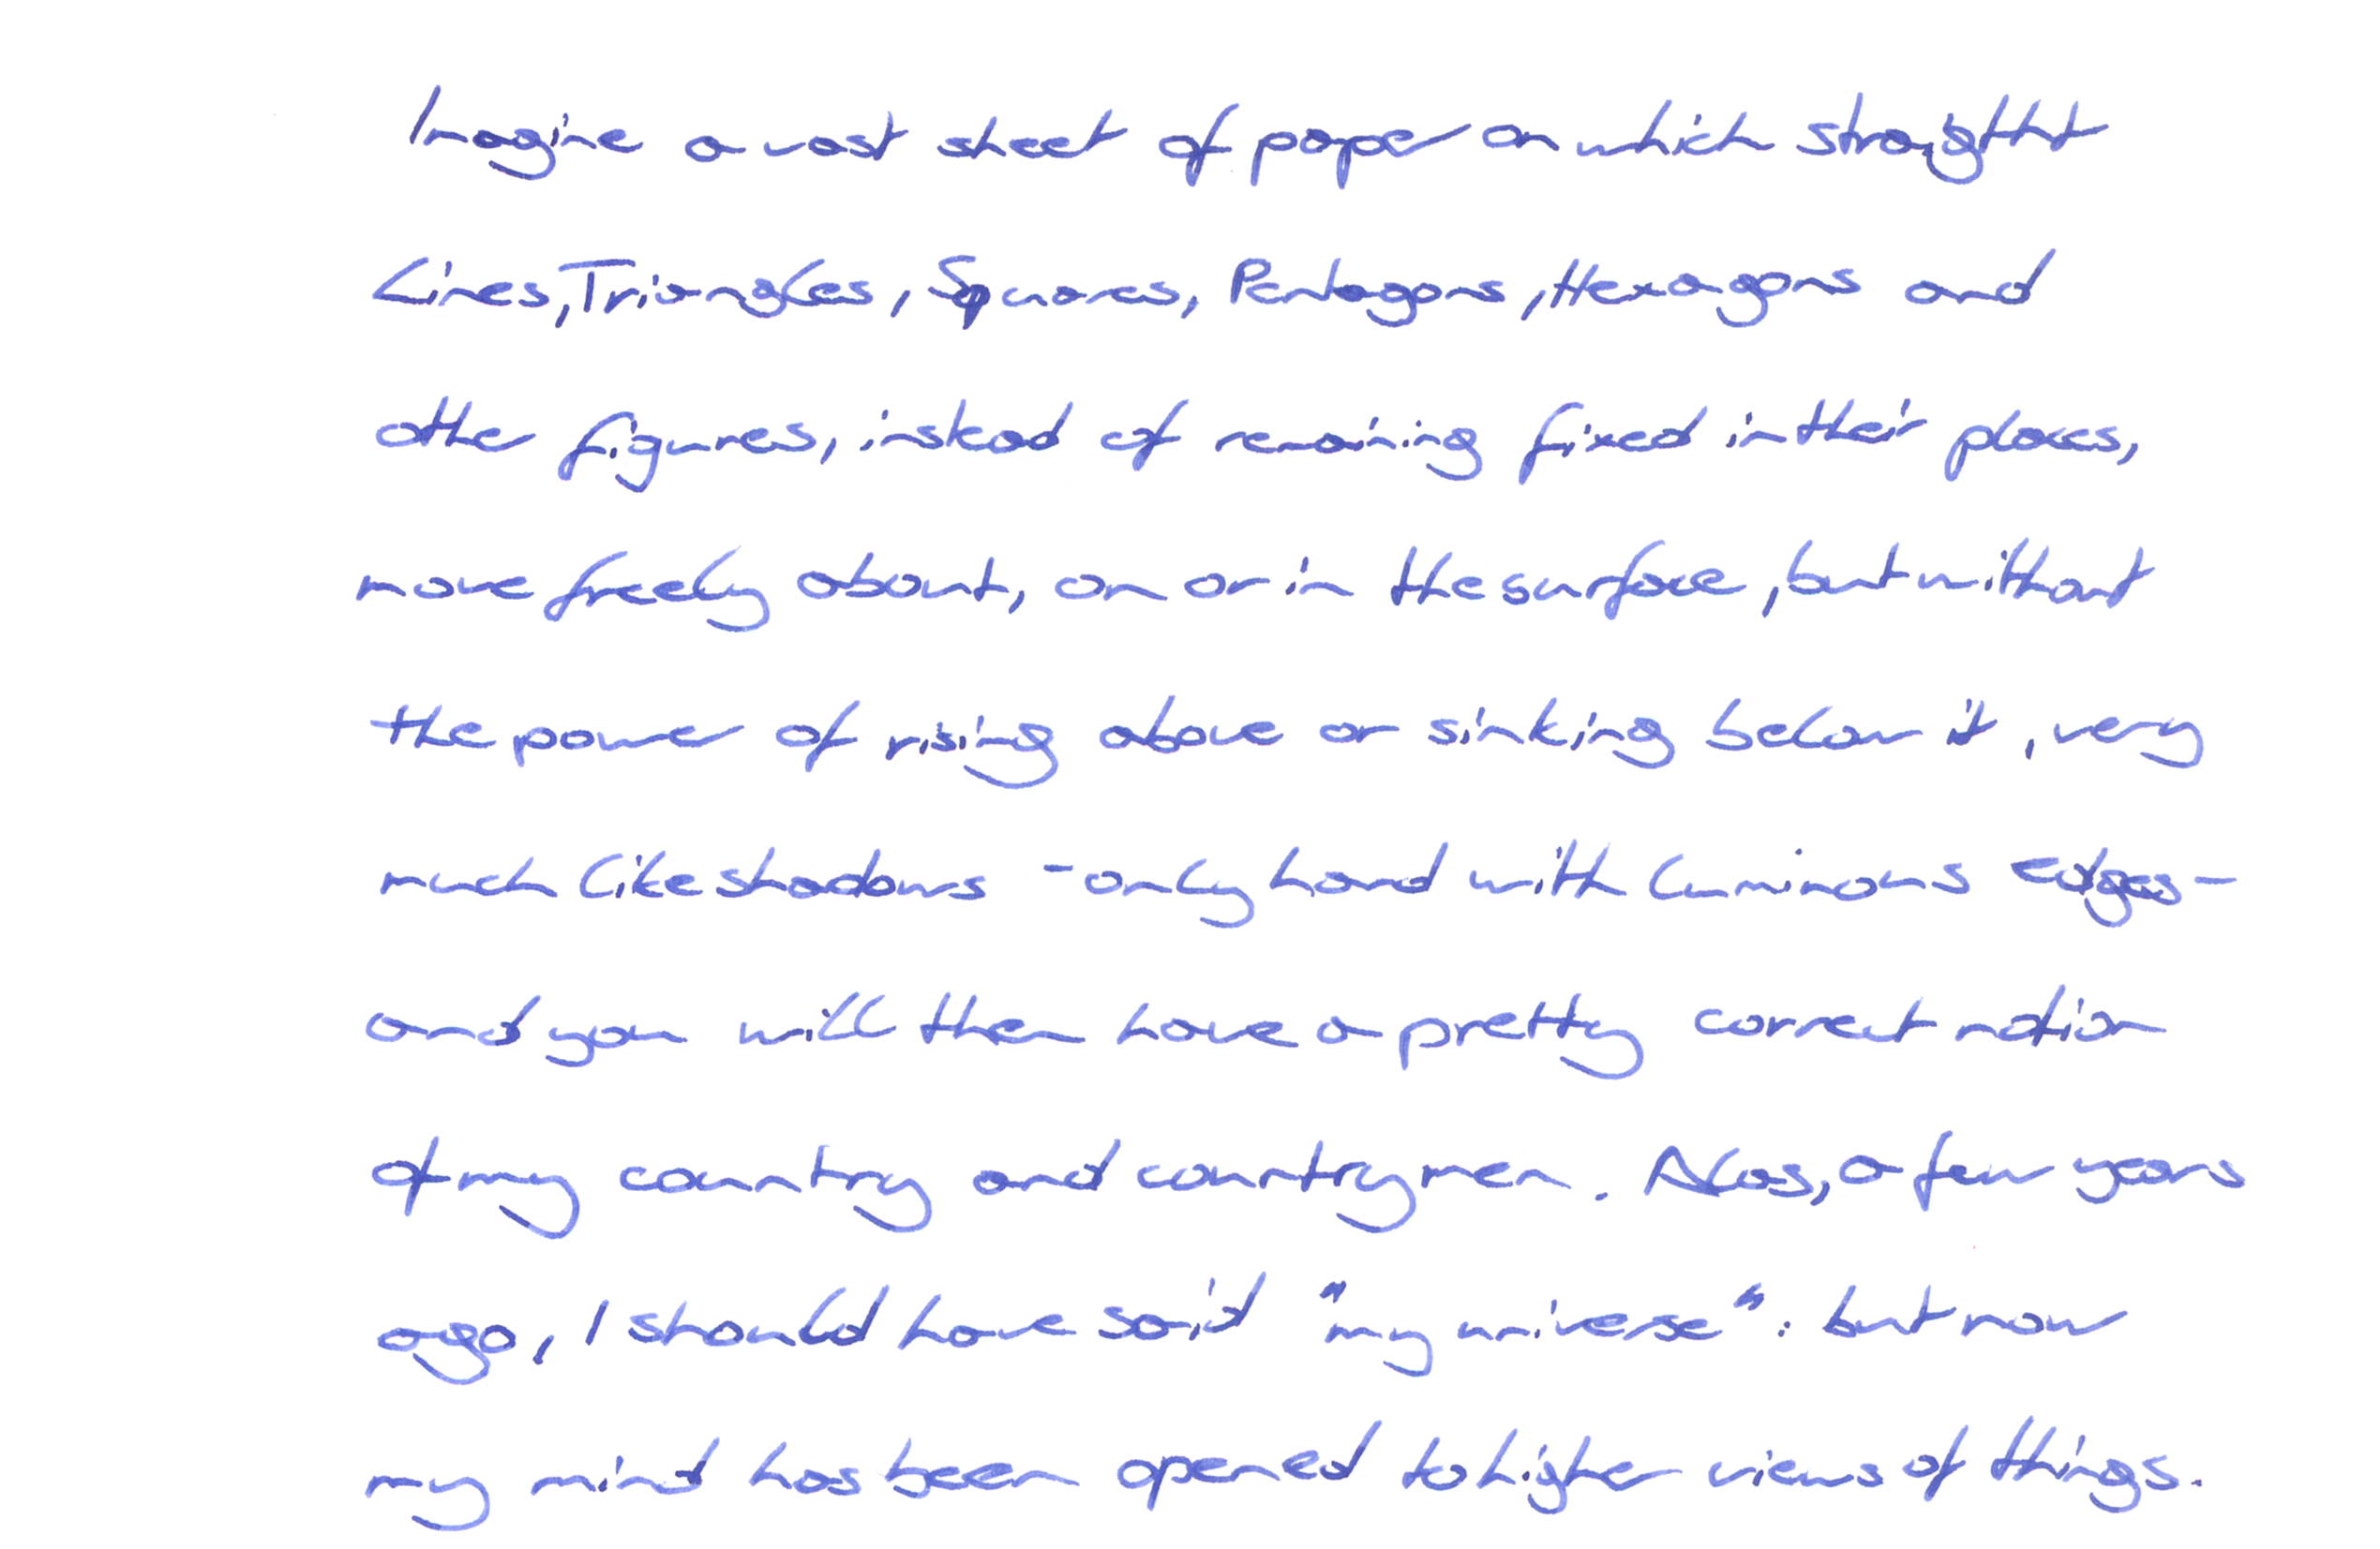 Imagine a vast sheet of paper on which straight
Lines, Triangles, Squares, Pentagons, Hexagons and
other figures, instead of remaining fixed in their places,
move freely about, on or in the surface, but without
the power of rising above or sinking below it, very
much like shadows - only hard with luminous edges -
and you will then have a pretty correct notion
of my country and countrymen. Alas, a few years
ago, I should have said "my universe": but now
my mind has been opened to higher views of things.